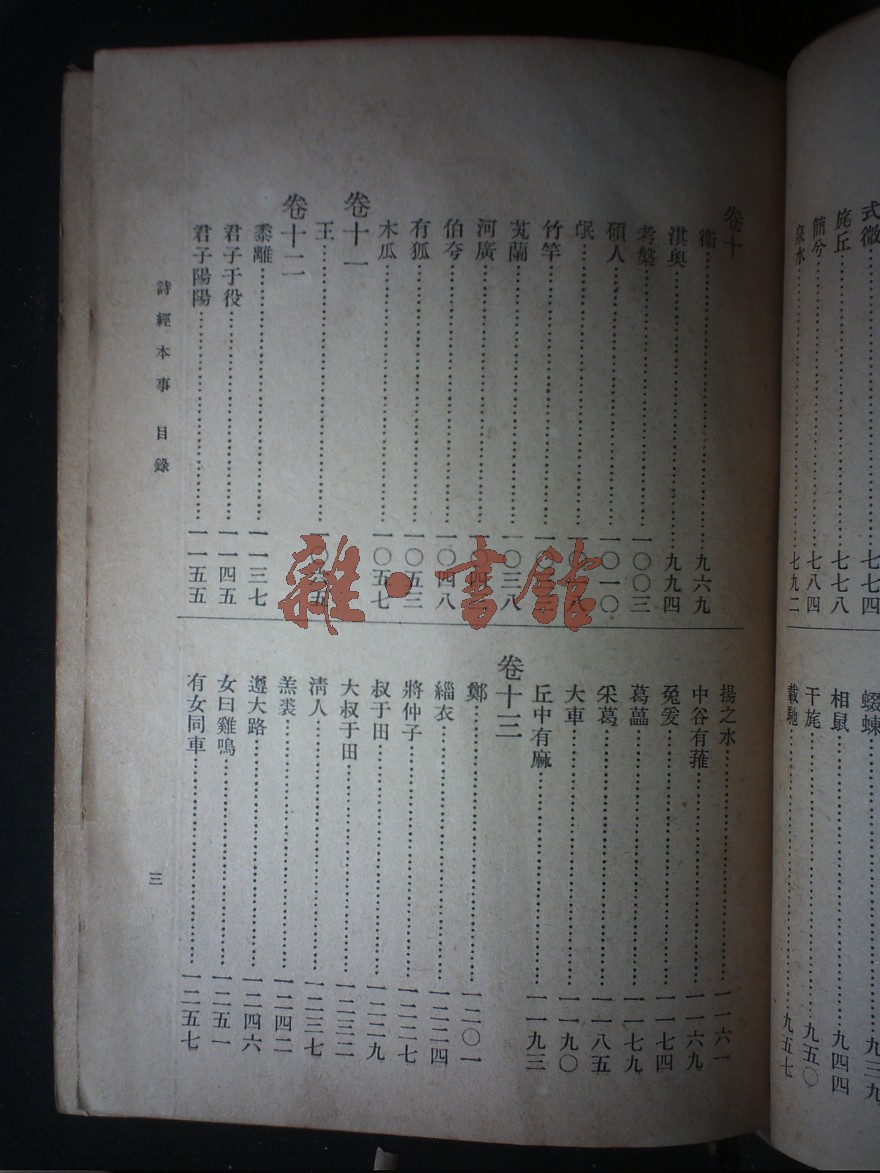 式微……七七四
旄丘……七七八
簡兮……七八四
泉水……七九二
蝃蝀……九三九
相鼠……九四四
干旄……九五〇
載馳……九五七
卷十
衛……九六九
淇奧……九九四
考槃……一〇〇三
碩人……一〇一〇
氓……
竹竿……
芄蘭……一〇三八
河廣……
伯兮……一〇四八
有狐……一〇五三
木瓜……一〇五七
卷十一
王……
卷十二
黍離……一一三七
君子于役……一一四五
君子陽陽……一一五五
揚之水……一一六一
中谷有蓷……一一六九
兔爰……一一七四
葛藟……一一七九
采葛……一一八五
大車……一一九〇
丘中有麻……一一九三
卷十三
鄭……一二〇一
緇衣……一二二四
將仲子……一二二七
叔于田……一二二九
大叔于田……一二三二
清人……一二三七
羔裘……一二四二
遵大路……一二四六
女曰雞鳴……一二五一
有女同車……一二五七
詩經本事 目錄
三
雜·書館